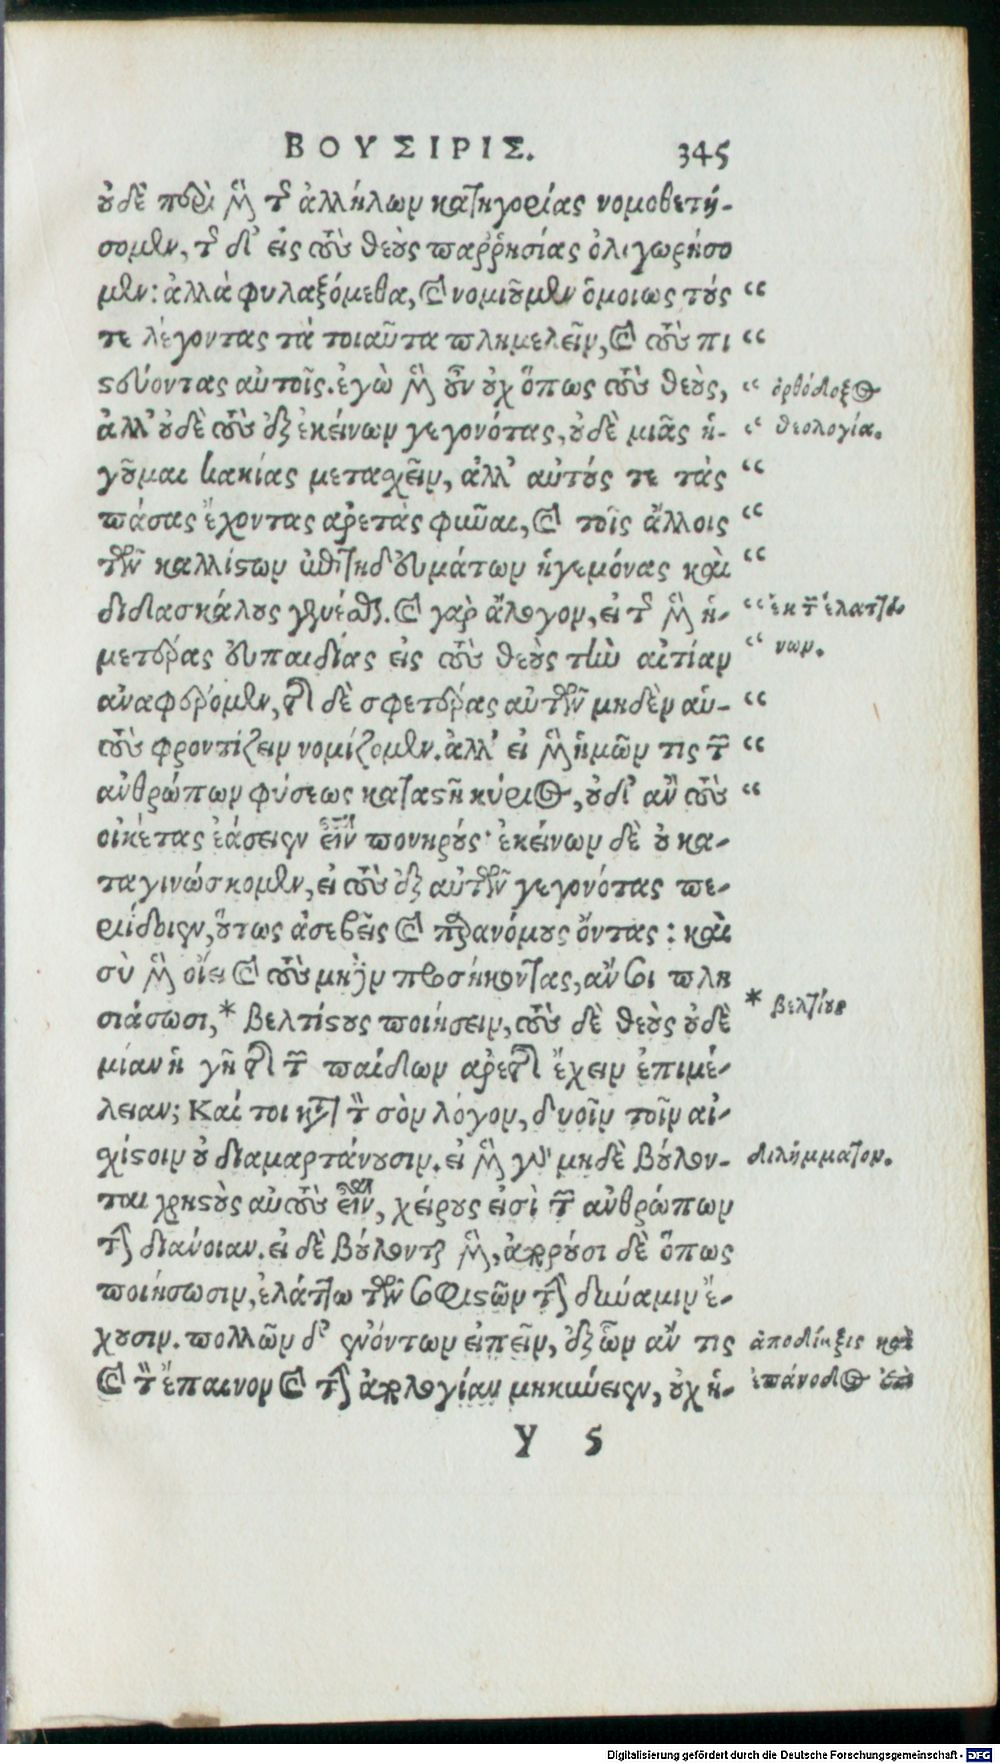 ΒΟΥΣΙΡΙΣ. 345
οὐδὲ περὶ μὲν τῆς ἀλλήλων κατηγορίας νομοθετή-
σομεν, τῆς δ' εἰς τοὺς θεοὺς παῤῥησίας ὀλιγωρήσο
μεν: ἀλλὰ φυλαξόμεθα, καὶ νομιοῦμεν ὁμοίως τούς “
τε λέγοντας τὰ τοιαῦτα πλημελεῖν, καὶ τοὺς πι “
στεύοντας αὐτοῖς. ἐγὼ μὲν οὖν οὐχ ὅπως τοὺς θεοὺς, “ ὀρθόδοξος
ἀλλ' οὐδὲ τοὺς ἐξ ἐκείνων γεγονότας, οὐδὲ μιᾶς ἡ- “ θεολογία.
γοῦμαι κακίας μετασχεῖν, ἀλλ' αὐτούς τε τὰς “
πάσας ἔχοντας ἀρετὰς φῦναι, καὶ τοῖς ἄλλοις “
τῶν καλλίστων ἐπιτηδευμάτων ἡγεμόνας καὶ “
διδασκάλους γεγενέσθαι. καὶ γὰρ ἄλογον, εἰ τῆς μὲν ἡ- “ ἐκ τῶν ἐλαττό-
μετέρας εὐπαιδίας εἰς τοὺς θεοὺς τὴν αἰτίαν “ νων.
ἀναφέρομεν, τῆς δὲ σφετέρας αὐτῶν μηδὲν αὐ- “
τοὺς φροντίζειν νομίζομεν. ἀλλ' εἰ μὲν ἡμῶν τις τῆς “
ἀνθρώπων φύσεως καταστῆ κύριος, οὐδ' ἂν τοὺς “
οἰκέτας ἐάσειεν εἶναι πονηρούς· ἐκείνων δὲ οὐ κα-
ταγινώσκομεν, εἰ τοὺς ἐξ αὐτῶν γεγονότας πε-
ριίδοιεν, οὕτως ἀσεβεῖς καὶ παρανόμους ὄντας: καὶ
σὺ μὲν οἴει καὶ τοὺς μηδὲν προσήκοντας, ἄν σοι πλη
σιάσωσι,* βελτίστους ποιήσειν, τοὺς δὲ θεοὺς οὐδὲ * βελτίους
μίαν ἡγῆ τῆς τῶν παίδων ἀρετῆς ἔχειν ἐπιμέ-
λειαν; Καί τοι κατὰ τὸν σὸν λόγον, δυοῖν τοῖν αἰ-
χίστοιν οὐ διαμαρτάνουσιν. εἰ μὲν γὰρ μηδὲ βούλον- διλήμματον.
ται χρηστοὺς αὐτοὺς εἶναι, χείρους εἰσὶ τῶν ἀνθρώπων
τὴν διάνοιαν. εἰ δὲ βούλονται μὲν, ἀποροῦσι δὲ ὅπως
ποιήσωσιν, ἐλάττω τῶν σοφιστῶν τὴν δύναμιν ἔ-
χουσιν. πολλῶν δ' ἐνόντων εἰπεῖν, ἐξ ὧν ἄν τις ἀπόδειξις καὶ
καὶ τὸν ἔπαινον καὶ τὴν ἀπολογίαν μηκύνειεν, οὐχ ἡ- ἐπάνοδος
Y 5
Digitalisierung gefördert durch die Deutsche Forschungsgemeinschaft - DFG